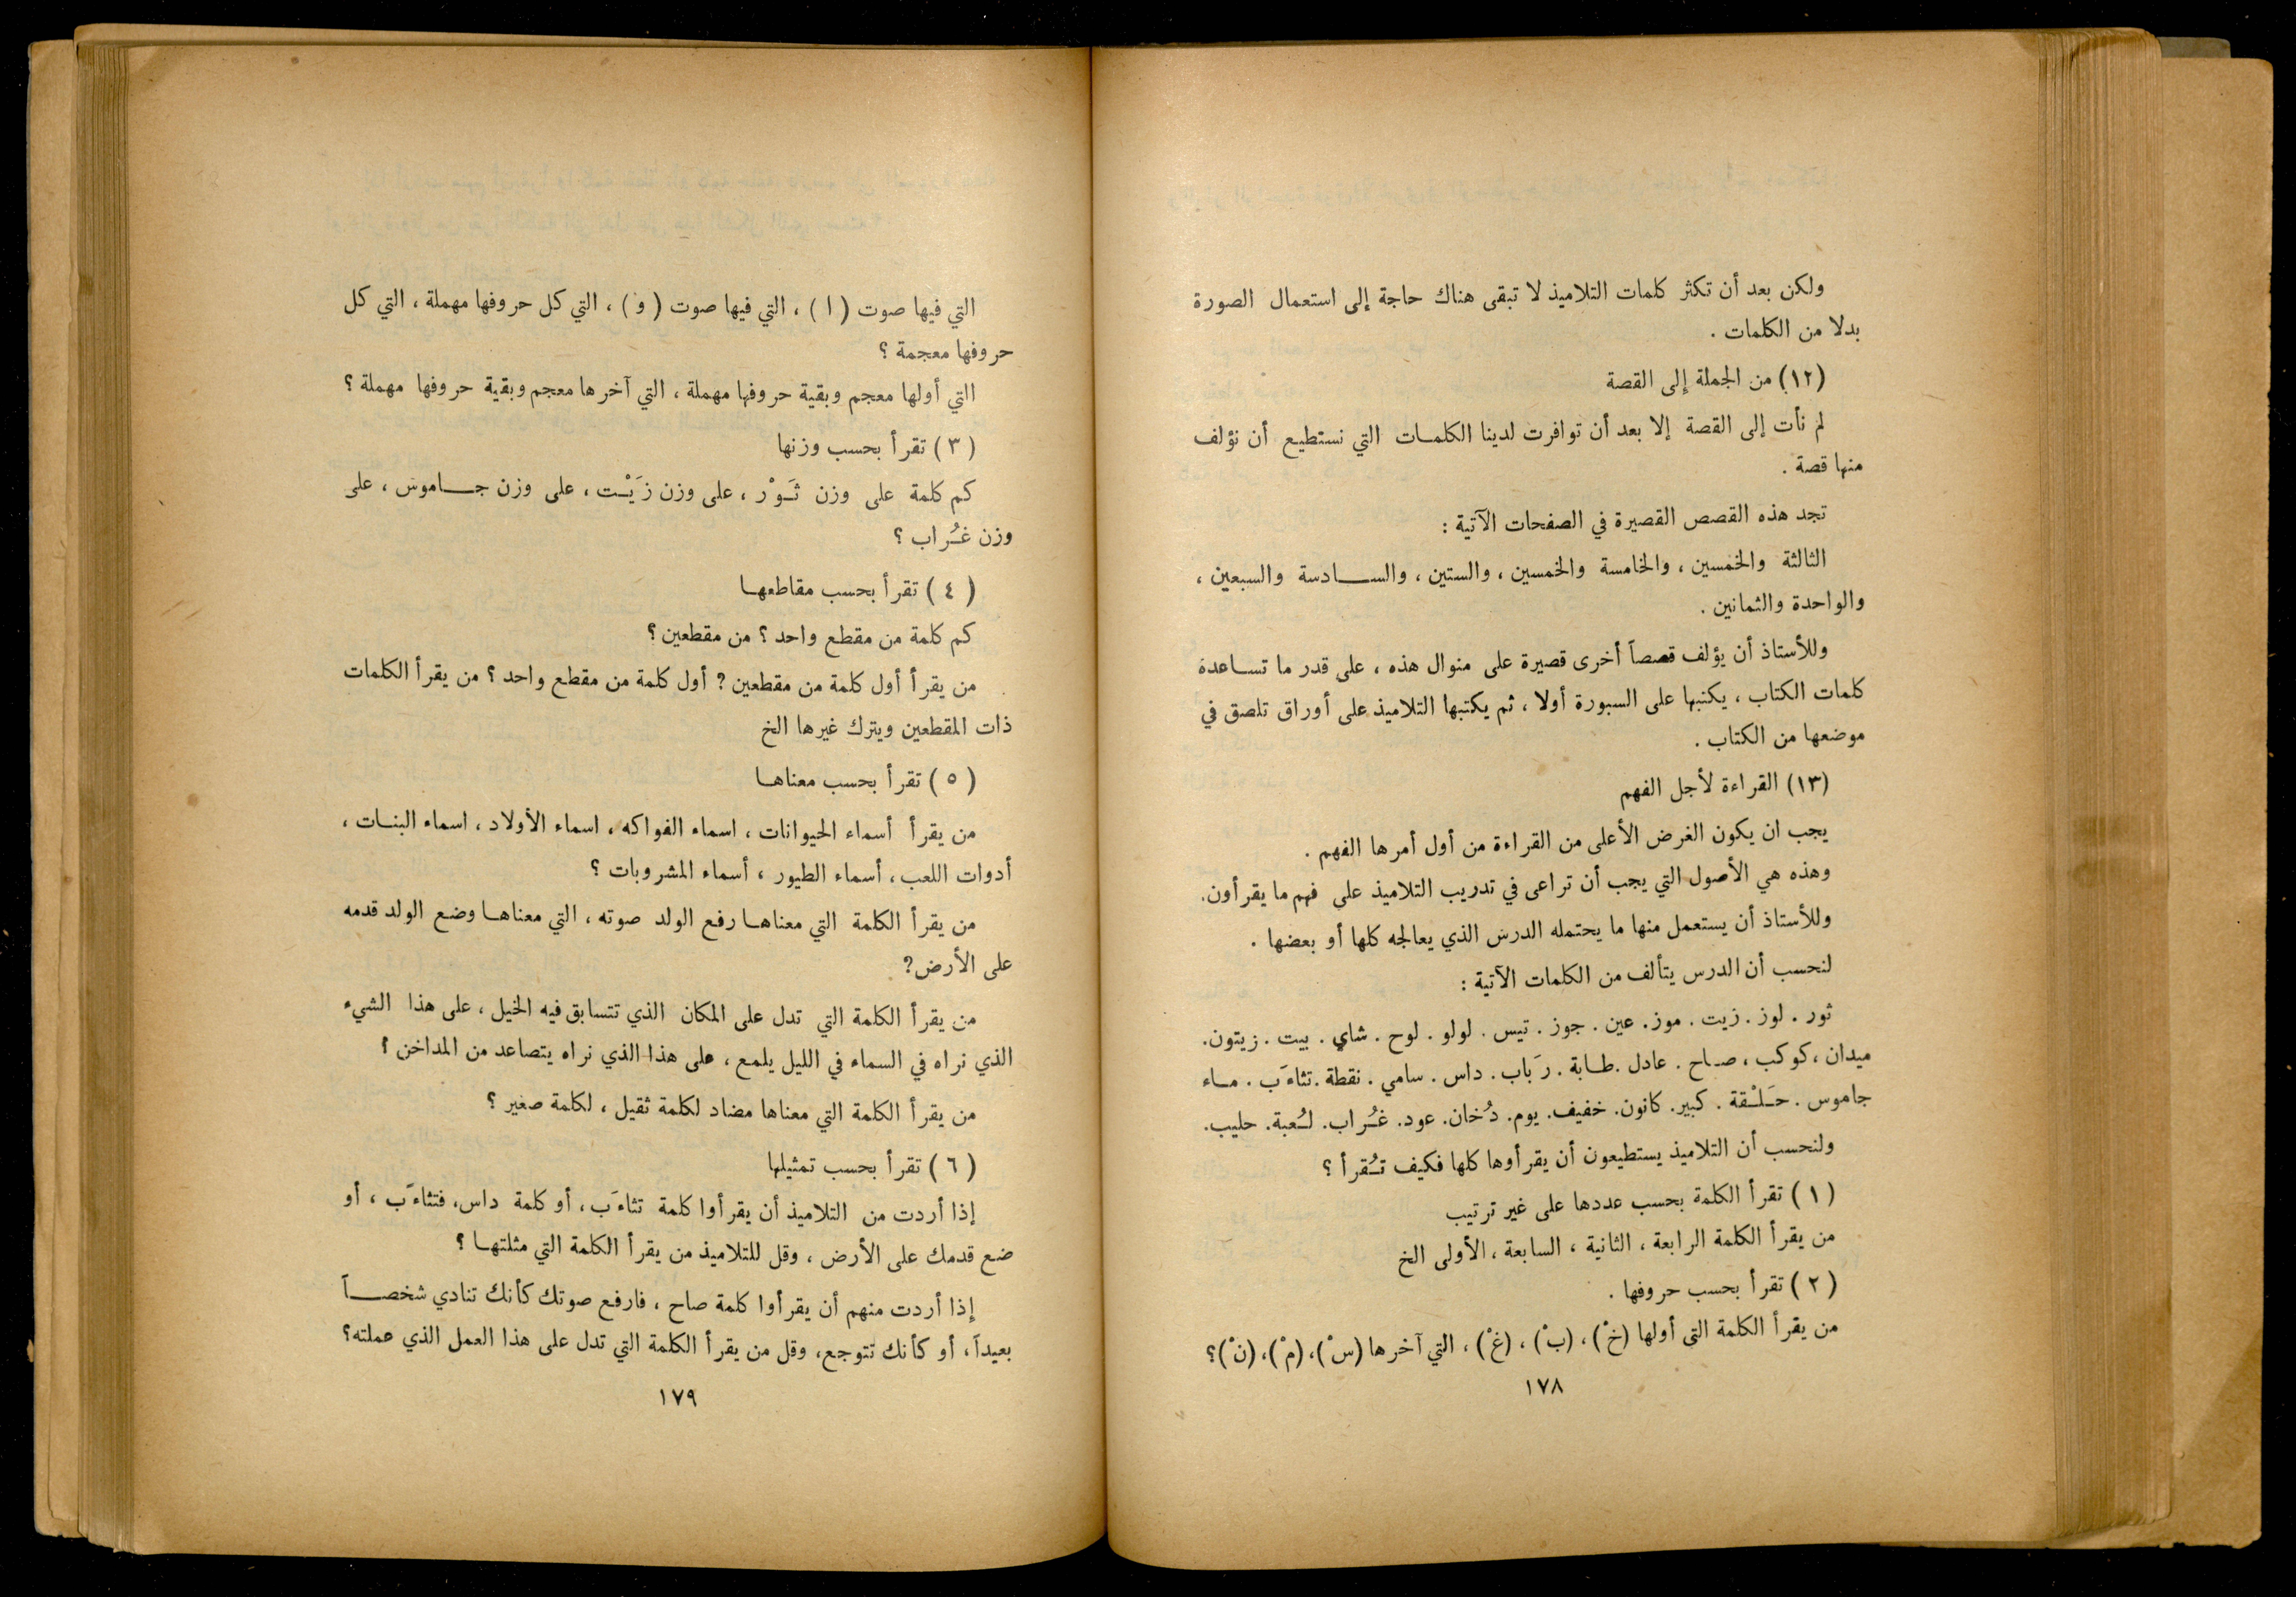 ولكن بعد أن تكثر كلمات التلاميذ لا تبقى هناك حاجة إلى استعمال الصورة
بدلا من الكلمات .
(١٢) من الجملة إلى القصة
لم نأت إلى القصة إلا بعد أن توافرت لدينا الكلمات التي نستطيع أن نؤلف
منها قصة .
تجد هذه القصص القصيرة في الصفحات الآتية :
الثالثة والخمسين ، والخامسة والخمسين ، والستين ، والسادسة والسبعين ،
والواحدة والثمانين .
وللأستاذ أن يؤلف قصصاً أخرى قصيرة على منوال هذه ، على قدر ما تساعدة
كلمات الكتاب ، يكتبها على السبورة أولا ، ثم يكتبها التلاميذ على أوراق تلصق في
موضعها من الكتاب .
(١٣) القراءة لأجل الفهم
يجب ان يكون الغرض الأعلى من القراءة من أول أمرها الفهم .
وهذه هي الأصول التي يجب أن تراعى في تدريب التلاميذ على فهم ما يقرأون .
وللأستاذ أن يستعمل منها ما يحتمله الدرس الذي يعالجه كلها أو بعضها .
لنحسب أن الدرس يتألف من الكلمات الآتية :
ثور . لوز . زيت . موز . عين . جوز . تيس . لولو . لوح . شاي . بيت . زيتون .
ميدان ، كوكب ، صاح . عادل . طابة . رَباب . داس . سامي . نقطة . تثاءَب . ماء
جاموس . حَلْقة . كبير . كانون . خفيف . يوم . دُخان . عود . غُراب . لُعبة . حليب .
ولنحسب أن التلاميذ يستطيعون أن يقرأوها كلها فكيف تُقرأ ؟
(١) تقرأ الكلمة بحسب عددها على غير ترتيب
من يقرأ الكلمة الرابعة ، الثانية ، السابعة ، الأولى الخ
(٢) تقرأ بحسب حروفها .
من يقرأ الكلمة التي أولها (خْ) ، (بْ) ، (غْ) ، التي آخرها (سْ) ، (مْ) ، (نْ) ؟
١٧٨
التي فيها صوت (ا) ، التي فيها صوت (و) ، التي كل حروفها مهملة ، التي كل
حروفها معجمة ؟
التي أولها معجم وبقية حروفها مهملة ، التي آخرها معجم وبقية حروفها مهملة ؟
(٣) تقرأ بحسب وزنها
كم كلمة على وزن ثَوْر ، على وزن زَيْت ، على وزن جاموس ، على
وزن غُراب ؟
(٤) تقرأ بحسب مقاطعها
كم كلمة من مقطع واحد ؟ من مقطعين ؟
من يقرأ أول كلمة من مقطعين ؟ أول كلمة من مقطع واحد ؟ من يقرأ الكلمات
ذات المقطعين ويترك غيرها الخ
(٥) تقرأ بحسب معناها
من يقرأ أسماء الحيوانات ، اسماء الفواكه ، اسماء الأولاد ، اسماء البنات ،
أدوات اللعب ، أسماء الطيور ، أسماء المشروبات ؟
من يقرأ الكلمة التي معناها رفع الولد صوته ، التي معناها وضع الولد قدمه
على الأرض ؟
من يقرأ الكلمة التي تدل على المكان الذي تتسابق فيه الخيل ، على هذا الشيء
الذي نراه في السماء في الليل يلمع ، على هذا الذي نراه يتصاعد من المداخن ؟
من يقرأ الكلمة التي معناها مضاد لكلمة ثقيل ، لكلمة صغير ؟
(٦) تقرأ بحسب تمثيلها
إذا أردت من التلاميذ أن يقرأوا كلمة تثاءَب ، أو كلمة داس ، فتثاءَب ، أو
ضع قدمك على الأرض ، وقل للتلاميذ من يقرأ الكلمة التي مثلتها ؟
إذا أردت منهم أن يقرأوا كلمة صاح ، فارفع صوتك كأنك تنادي شخصاً
بعيداً ، أو كأنك تتوجع ، وقل من يقرأ الكلمة التي تدل على هذا العمل الذي عملته ؟
١٧٩